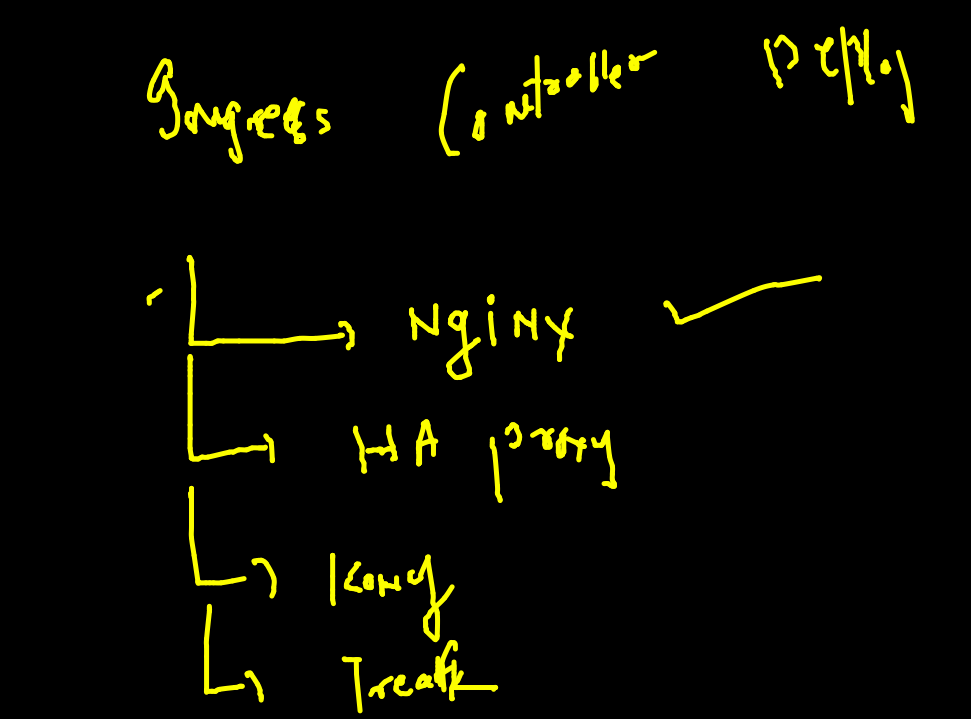 Ingress Controller Deploy
Nginx
HA proxy
Kong
Treafk